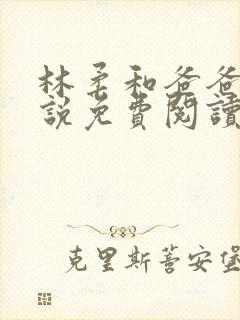 林柔和爸爸
說免費閱讀
克里斯蒂安堡